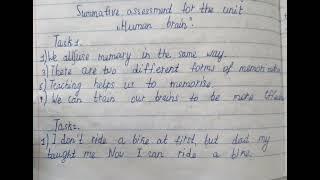 Summative assessment for the unit
„Human brain”.
Task 1.
1) We all use memory in the same way.
3) There are two different forms of
5) Tracking helps us to memorise.
7) We can train our brains to be more
Task 2.
1) I don't ride a bike at first, but dad my
taught me Now I can ride a bike.